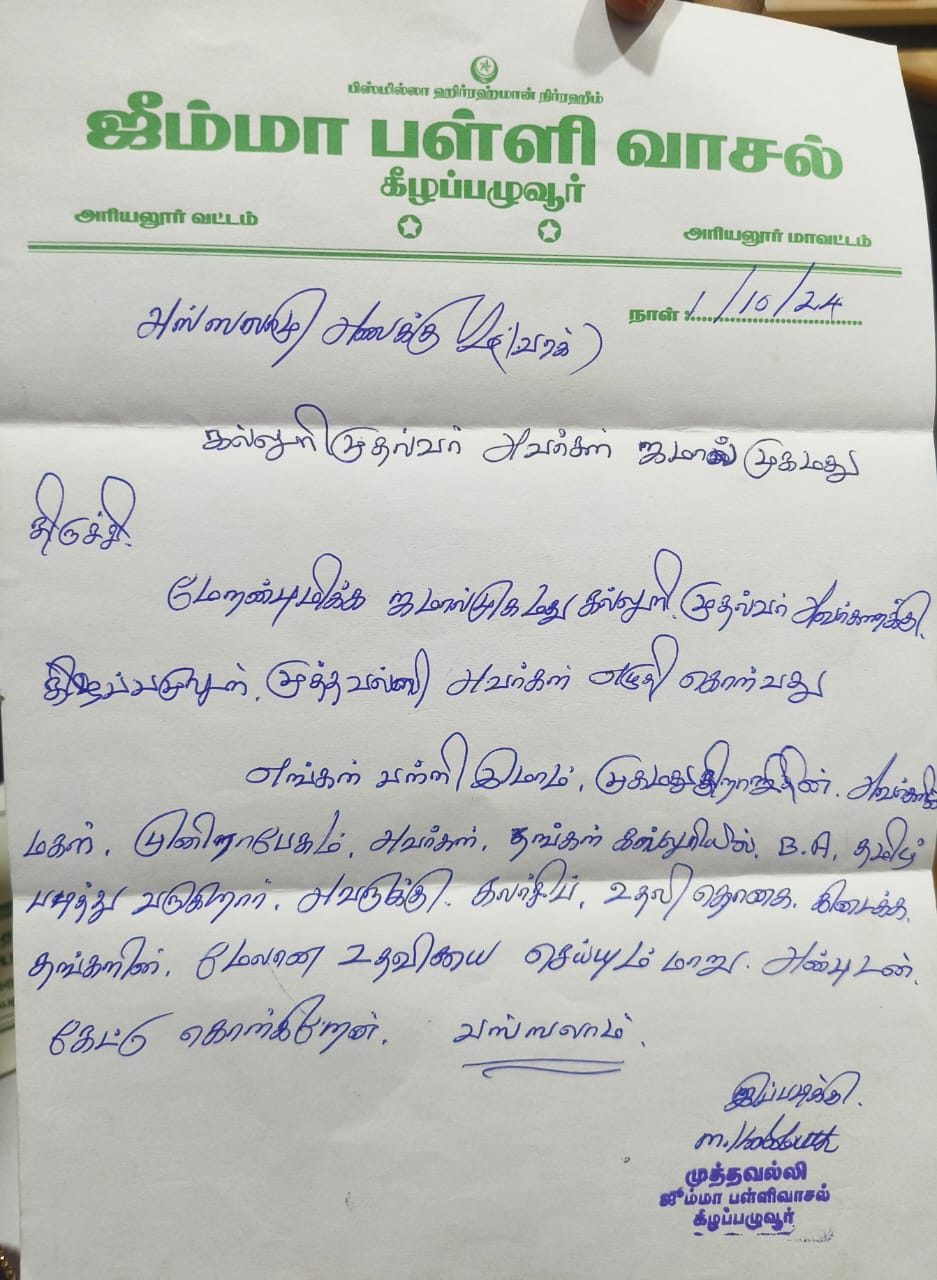 பிஸ்மில்லா ஹிர்ரஹ்மான் நிர்ரஹீம்
ஜீம்மா பள்ளி வாசல்
கீழப்பழுவூர்
அரியலூர் வட்டம் அரியலூர் மாவட்டம்
நாள் : 1/10/24
அஸ்ஸலாமு அலைக்கு (வரக்)
கல்லுரி முதல்வர் அவர்கள் ஜமால் முகமது
திருச்சி.
மேறண்புமிக்க ஜமால்முகமது கல்லுரி. முதல்வர் அவர்களுக்கு.
முத்தவல்லி அவர்கள் எழுதி கொள்வது
எங்கள் பள்ளி இமாம், அவர்களின்
மகள். அவர்கள், தங்கள் கல்லுரியில். B.A, தமிழ்
படித்து வருகிறார். அவருக்கு. கலர்சிப், உதவி தொகை. கிடைக்க.
தங்களின். மேலான உதவியை செய்யும் மாறு. அன்புடன்.
கேட்டு கொள்கிறேன். வஸ்ஸலாம்.
இப்படிக்கு.
முத்தவல்லி
ஜும்மா பள்ளிவாசல்
கீழப்பழுவூர்